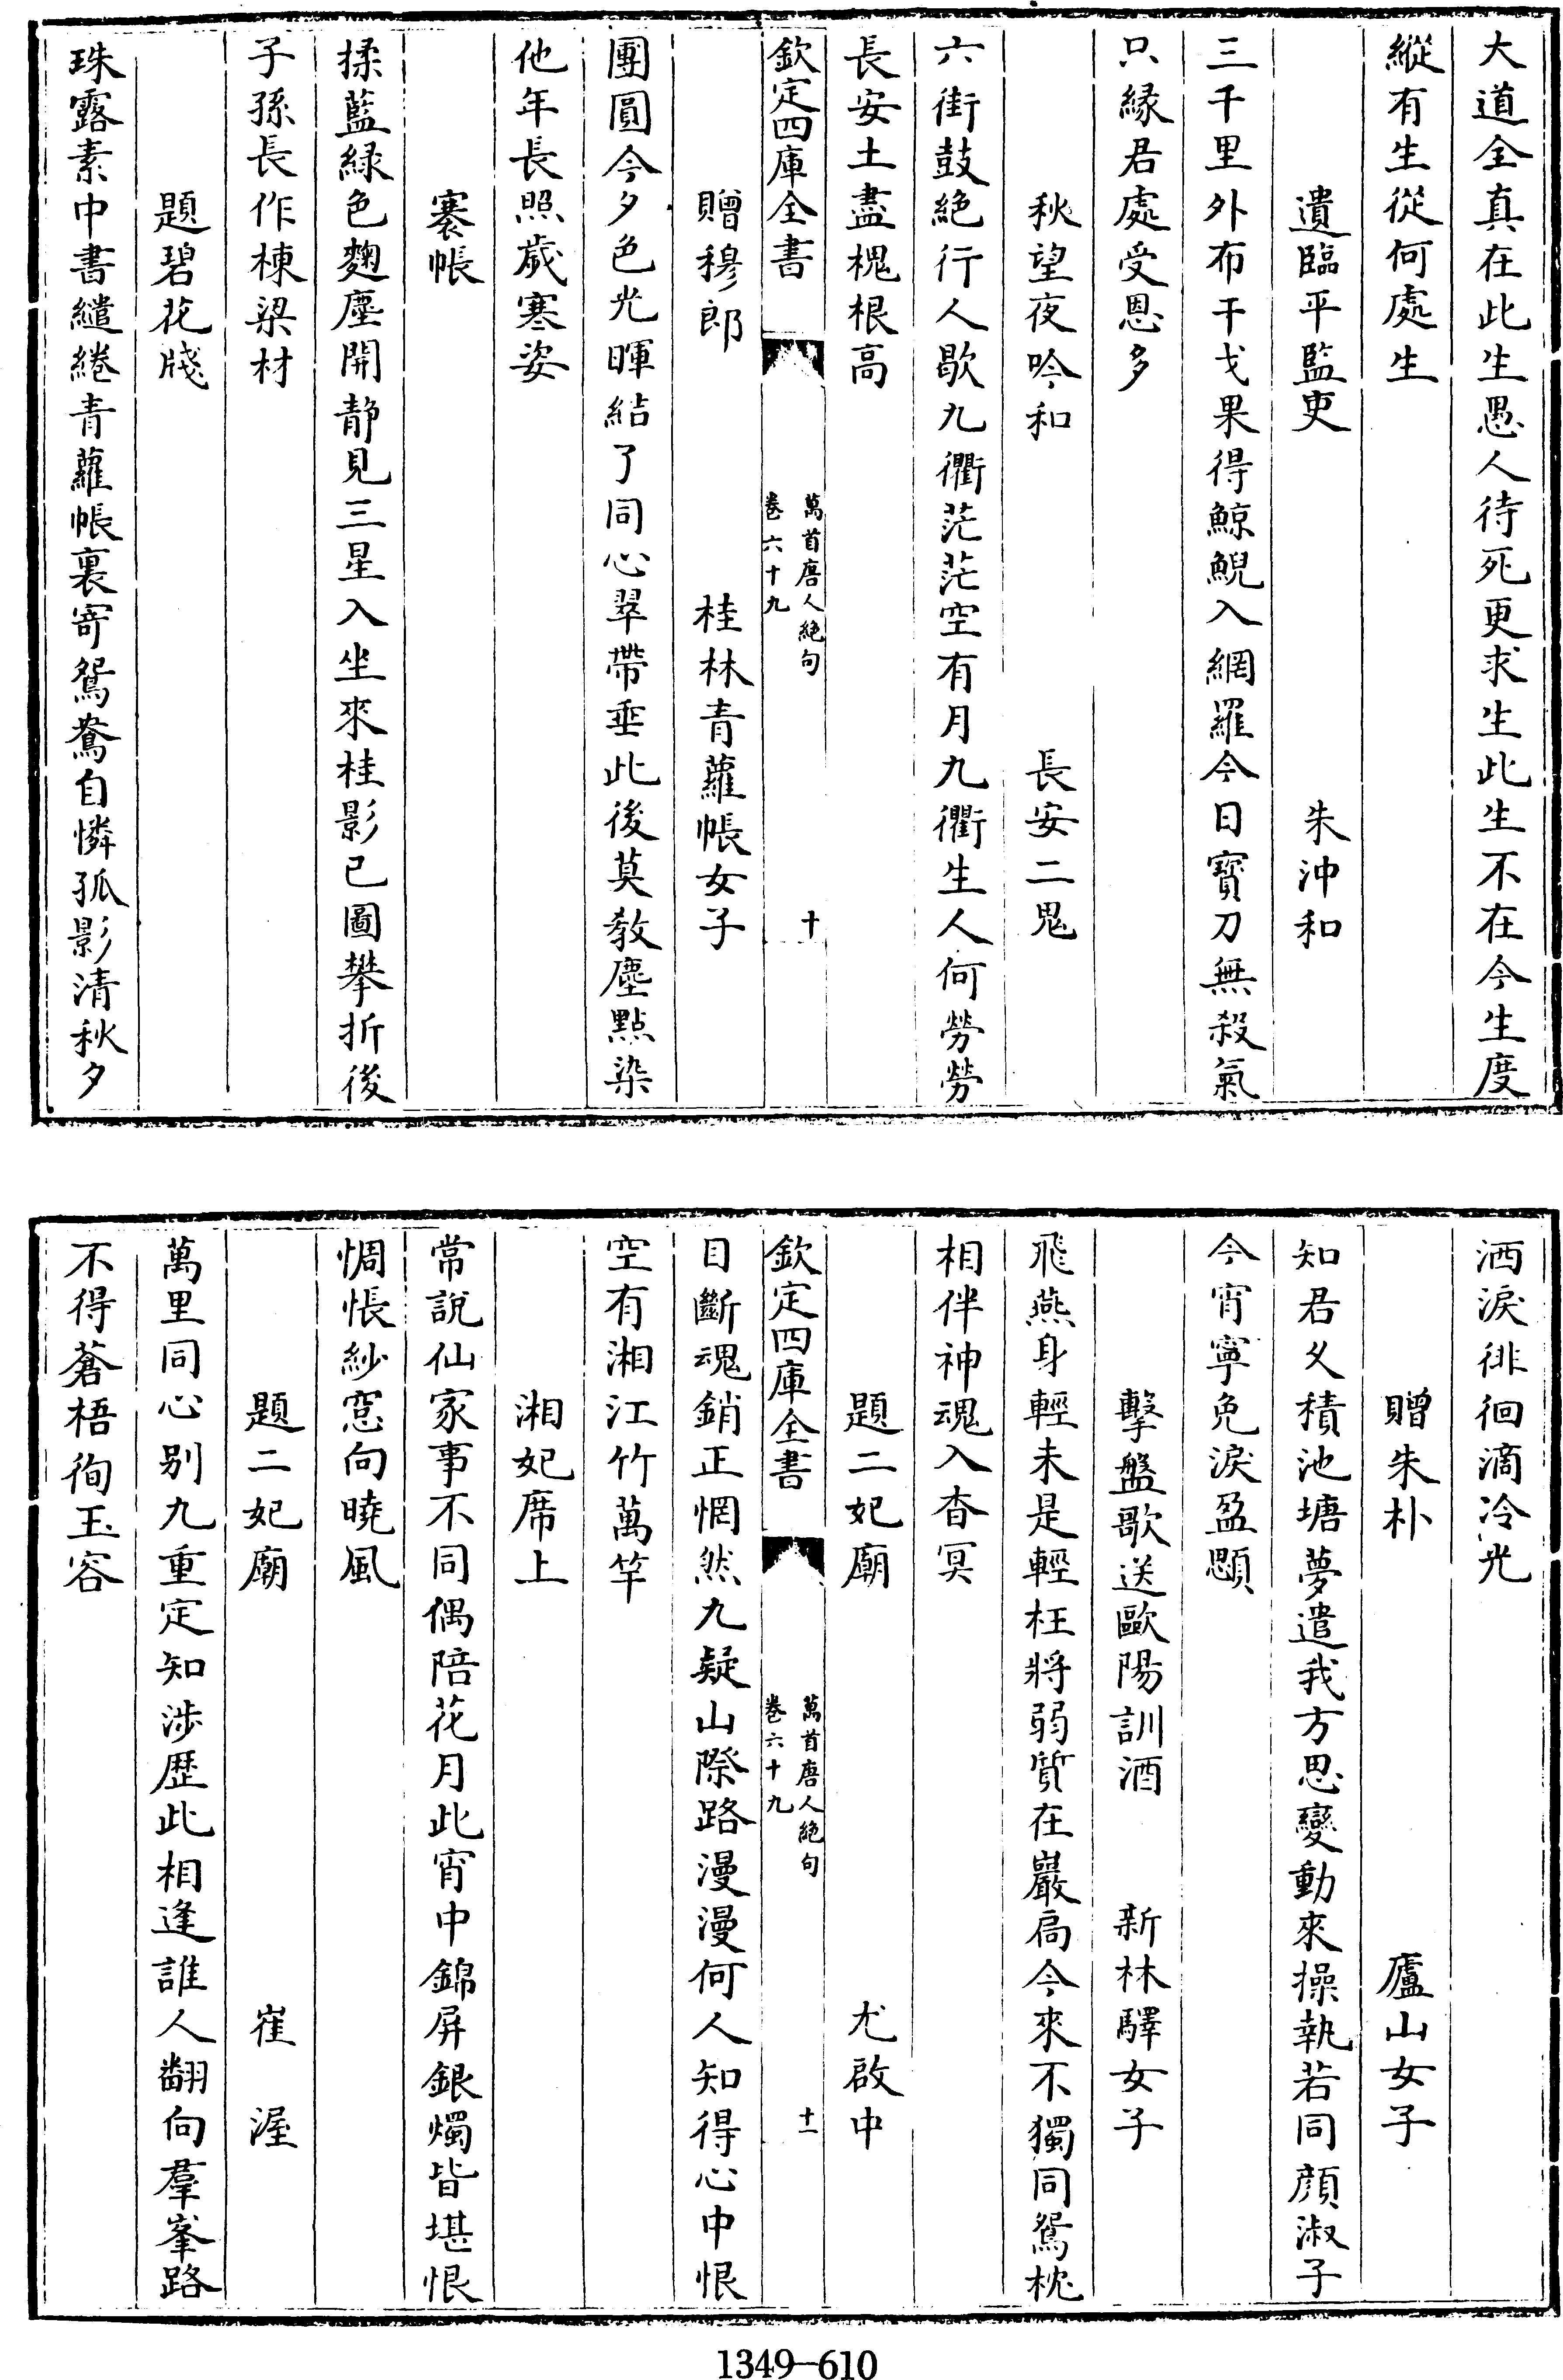 大道全真在此生愚人待死更求生此生不在今生度
縱有生從何處生
遺臨平監吏　朱沖和
三千里外布干戈果得鯨鯢入網羅今日寳刀無殺氣
只縁君處受恩多
秋望夜吟和　長安二鬼
六街鼓絶行人歇九衢茫茫空有月九衢生人何勞勞
長安土盡槐根高
欽定四庫全書
萬首唐人絶句
卷六十九
十
贈穆郎　桂林青蘿帳女子
團圓今夕色光暉結了同心翠帶垂此後莫教塵點染
他年長照歲寒姿
褰帳
揉藍緑色麴塵開静見三星入坐來桂影已圖攀折後
子孫長作棟梁材
題碧花牋
珠露素中書繾綣青蘿帳裏寄鴛鴦自憐孤影清秋夕
洒淚徘徊滴冷光
贈朱朴　廬山女子
知君乆積池塘夢遣我方思變動來操執若同顔淑子
今宵寧免淚盈顋
擊盤歌送歐陽訓酒　新林驛女子
飛燕身輕未是輕枉將弱質在巖扄今來不獨同鴛枕
相伴神魂入杳冥
題二妃廟　尤啟中
欽定四庫全書
萬首唐人絶句
卷六十九
十一
目斷魂銷正惘然九疑山際路漫漫何人知得心中恨
空有湘江竹萬竿
湘妃席上
常說仙家事不同偶陪花月此宵中錦屏銀燭皆堪恨
惆悵紗窓向曉風
題二妃廟　崔渥
萬里同心别九重定知涉歴此相逢誰人翻向羣峯路
不得蒼梧徇玉容
1349—610